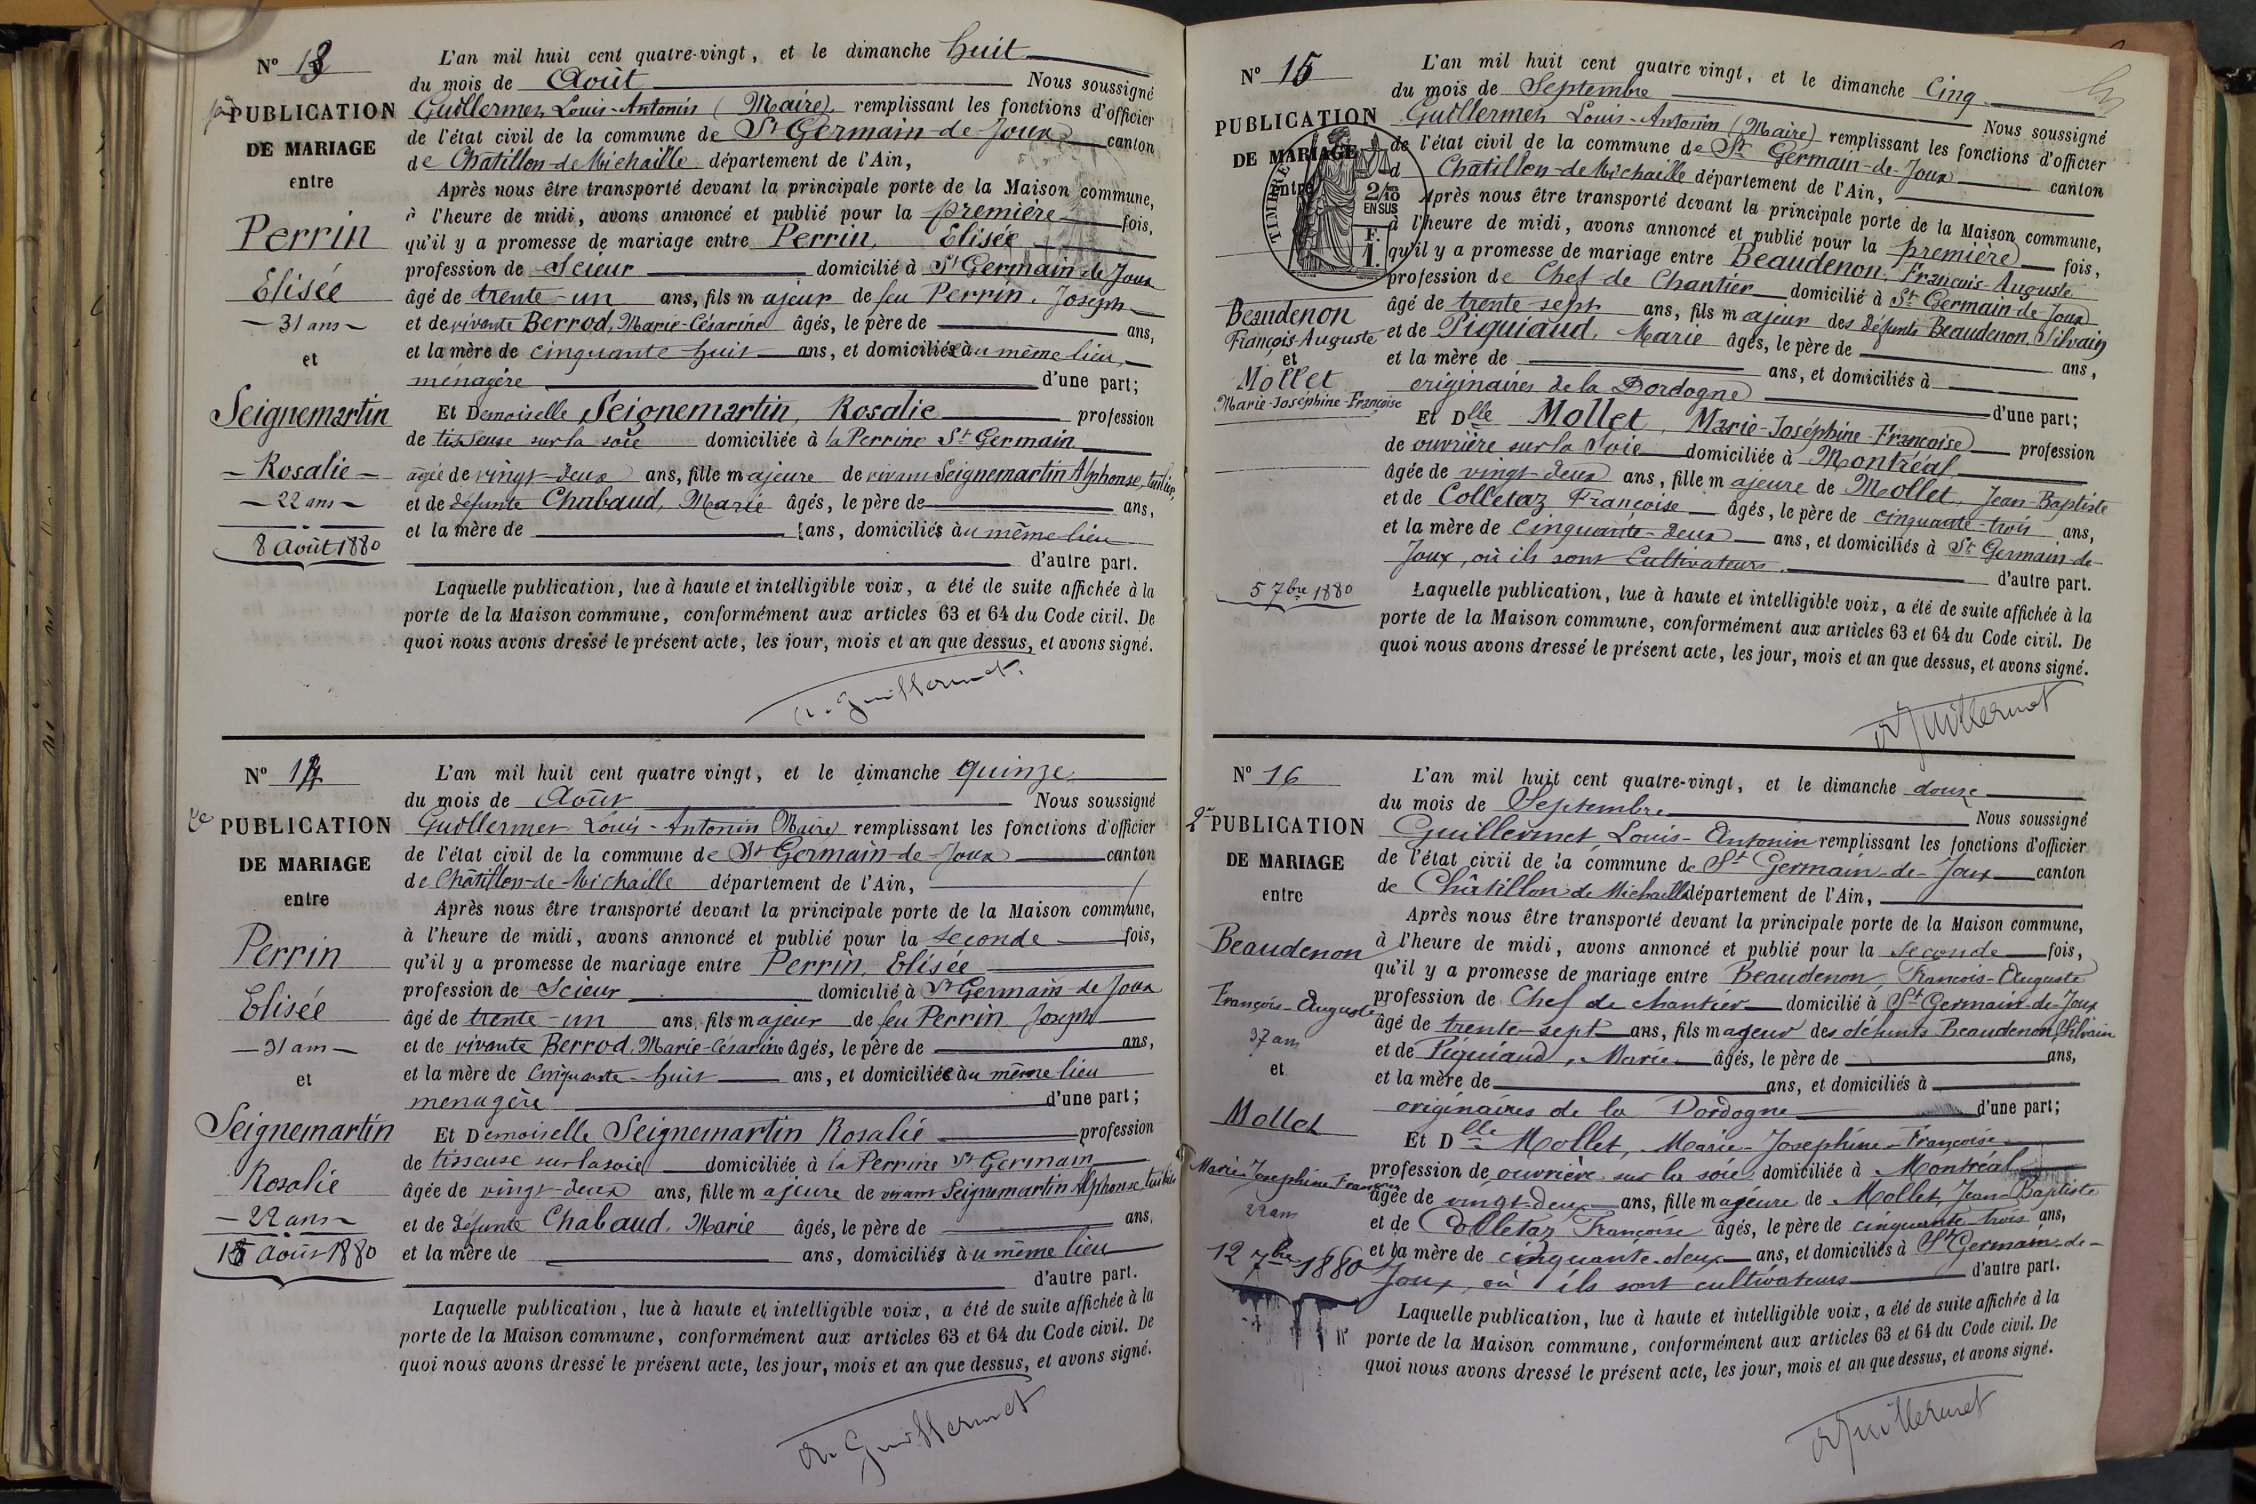 N° 13
PUBLICATION
DE MARIAGE
entre
Perrin
Elisée
— 31 ans —
et
Seignemartin
— Rosalie —
— 22 ans —
8 Août 1880
L'an mil huit cent quatre-vingt, et le dimanche huit
du mois de Août Nous soussigné
Guillermet, Louis-Antonin (Maire) remplissant les fonctions d'officier
de l'état civil de la commune de St Germain-de-Joux canton
de Châtillon-de-Michaille département de l'Ain,
Après nous être transporté devant la principale porte de la Maison commune,
à l'heure de midi, avons annoncé et publié pour la première fois,
qu'il y a promesse de mariage entre Perrin, Elisée
profession de Scieur domicilié à St Germain de Joux
âgé de trente-un ans, fils majeur de feu Perrin, Joseph
et de vivante Berrod, Marie-Césarine âgés, le père de ans,
et la mère de cinquante-huit ans, et domiciliés au même lieu,
ménagère d'une part;
Et Demoiselle Seignemartin, Rosalie profession
de tisseuse sur la soie domiciliée à la Perrine St Germain
âgée de vingt-deux ans, fille majeure de vivant Seignemartin Alphonse,
et de défunte Chabaud, Marie âgés, le père de ans,
et la mère de ans, domiciliés au même lieu
d'autre part.
Laquelle publication, lue à haute et intelligible voix, a été de suite affichée à la
porte de la Maison commune, conformément aux articles 63 et 64 du Code civil. De
quoi nous avons dressé le présent acte, les jour, mois et an que dessus, et avons signé.
A. Guillermet
N° 14
2e PUBLICATION
DE MARIAGE
entre
Perrin
Elisée
— 31 ans —
et
Seignemartin
Rosalie
— 22 ans —
15 Août 1880
L'an mil huit cent quatre vingt, et le dimanche quinze
du mois de Août Nous soussigné
Guillermet Louis-Antonin (Maire) remplissant les fonctions d'officier
de l'état civil de la commune de St Germain-de-Joux canton
de Châtillon-de-Michaille département de l'Ain,
Après nous être transporté devant la principale porte de la Maison commune,
à l'heure de midi, avons annoncé et publié pour la seconde fois,
qu'il y a promesse de mariage entre Perrin, Elisée
profession de Scieur domicilié à St Germain de Joux
âgé de trente-un ans, fils majeur de feu Perrin Joseph
et de vivante Berrod, Marie-Césarine âgés, le père de ans,
et la mère de cinquante-huit ans, et domiciliés au même lieu
menagère d'une part;
Et Demoiselle Seignemartin Rosalie profession
de tisseuse sur la soie domiciliée à la Perrine St Germain
âgée de vingt-deux ans, fille majeure de vivant Seignemartin Alphonse
et de défunte Chabaud, Marie âgés, le père de ans,
et la mère de ans, domiciliés au même lieu
d'autre part.
Laquelle publication, lue à haute et intelligible voix, a été de suite affichée à la
porte de la Maison commune, conformément aux articles 63 et 64 du Code civil. De
quoi nous avons dressé le présent acte, les jour, mois et an que dessus, et avons signé.
A. Guillermet
N° 15
PUBLICATION
DE MARIAGE
entre
TIMBRE
2/10
EN SUS
1 F.
Beaudenon
François-Auguste
et
Mollet
Marie-Joséphine-Françoise
5 7bre 1880
L'an mil huit cent quatre vingt, et le dimanche Cinq
du mois de Septembre Nous soussigné
Guillermet, Louis-Antonin (Maire) remplissant les fonctions d'officier
de l'état civil de la commune de St Germain-de-Joux canton
d Châtillon-de-Michaille département de l'Ain,
Après nous être transporté devant la principale porte de la Maison commune,
à l'heure de midi, avons annoncé et publié pour la première fois,
qu'il y a promesse de mariage entre Beaudenon, François-Auguste
profession de Chef de Chantier domicilié à St Germain-de-Joux
âgé de trente-sept ans, fils majeur des défunts Beaudenon, Silvain
et de Piquiaud, Marie âgés, le père de ans,
et la mère de ans, et domiciliés à
originaires de la Dordogne d'une part;
Et Dlle Mollet, Marie-Joséphine-Françoise profession
de ouvrière sur la soie domiciliée à Montréal
âgée de vingt-deux ans, fille majeure de Mollet, Jean-Baptiste
et de Colletaz Françoise âgés, le père de cinquante-trois ans,
et la mère de cinquante-deux ans, et domiciliés à St Germain-de-
Joux, où ils sont Cultivateurs. d'autre part.
Laquelle publication, lue à haute et intelligible voix, a été de suite affichée à la
porte de la Maison commune, conformément aux articles 63 et 64 du Code civil. De
quoi nous avons dressé le présent acte, les jour, mois et an que dessus, et avons signé.
A Guillermet
N° 16
2e PUBLICATION
DE MARIAGE
entre
Beaudenon
François-Auguste
37 ans
et
Mollet
Marie Josephine Françoise
22 ans
12 7bre 1880
L'an mil huit cent quatre-vingt, et le dimanche douze
du mois de Septembre Nous soussigné
Guillermet, Louis-Antonin remplissant les fonctions d'officier
de l'état civil de la commune de St Germain-de-Joux canton
de Châtillon de Michaille département de l'Ain,
Après nous être transporté devant la principale porte de la Maison commune,
à l'heure de midi, avons annoncé et publié pour la seconde fois,
qu'il y a promesse de mariage entre Beaudenon, François-Auguste
profession de Chef de chantier domicilié à St Germain-de-Joux
âgé de trente-sept ans, fils majeur des défunts Beaudenon, Silvain
et de Piquiaud, Marie âgés, le père de ans,
et la mère de ans, et domiciliés à
originaires de la Dordogne d'une part;
Et Dlle Mollet, Marie-Josephine-Françoise
profession de ouvrière sur la soie domiciliée à Montréal
âgée de vingt-deux ans, fille majeure de Mollet, Jean-Baptiste
et de Colletaz Françoise âgés, le père de cinquante-trois ans,
et la mère de cinquante-deux ans, et domiciliés à St Germain-de-
Joux, où ils sont cultivateurs d'autre part.
Laquelle publication, lue à haute et intelligible voix, a été de suite affichée à la
porte de la Maison commune, conformément aux articles 63 et 64 du Code civil. De
quoi nous avons dressé le présent acte, les jour, mois et an que dessus, et avons signé.
A Guillermet